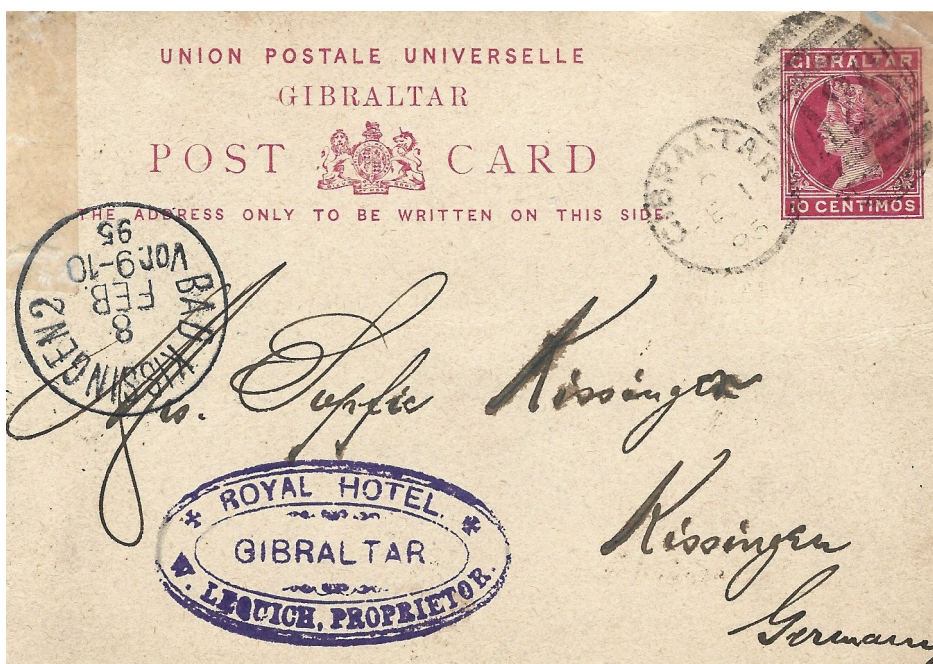 UNION POSTALE UNIVERSELLE
GIBRALTAR
POST CARD
THE ADDRESS ONLY TO BE WRITTEN ON THIS SIDE.
GIBRALTAR
10 CENTIMOS
GIBRALTAR
95
BAD KISSINGEN 2
8
FEB.
Vor. 9-10
95
Mrs. Sopfie Kissinger
Kissingen
Germany
ROYAL HOTEL.
GIBRALTAR
W. LEQUICH, PROPRIETOR.